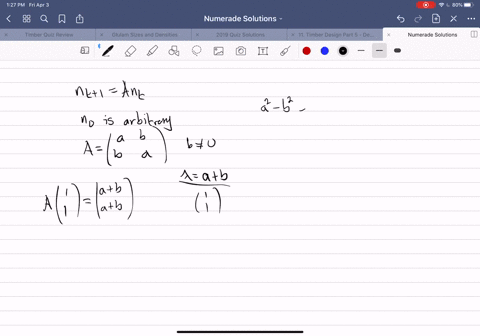 1:27 PM Fri Apr 3
80%
Numerade Solutions
Timber Quiz Review
Glulam Sizes and Densities
2019 Quiz Solutions
11. Timber Design Part 5 - De...
Numerade Solutions
n_{t+1} = An_t
n_0 is arbitrary
A = \begin{pmatrix} a & b \\ b & a \end{pmatrix} b ≠ 0
a² - b² -
λ = a+b
A \begin{pmatrix} 1 \\ 1 \end{pmatrix} = \begin{pmatrix} a+b \\ a+b \end{pmatrix}
\begin{pmatrix} 1 \\ 1 \end{pmatrix}